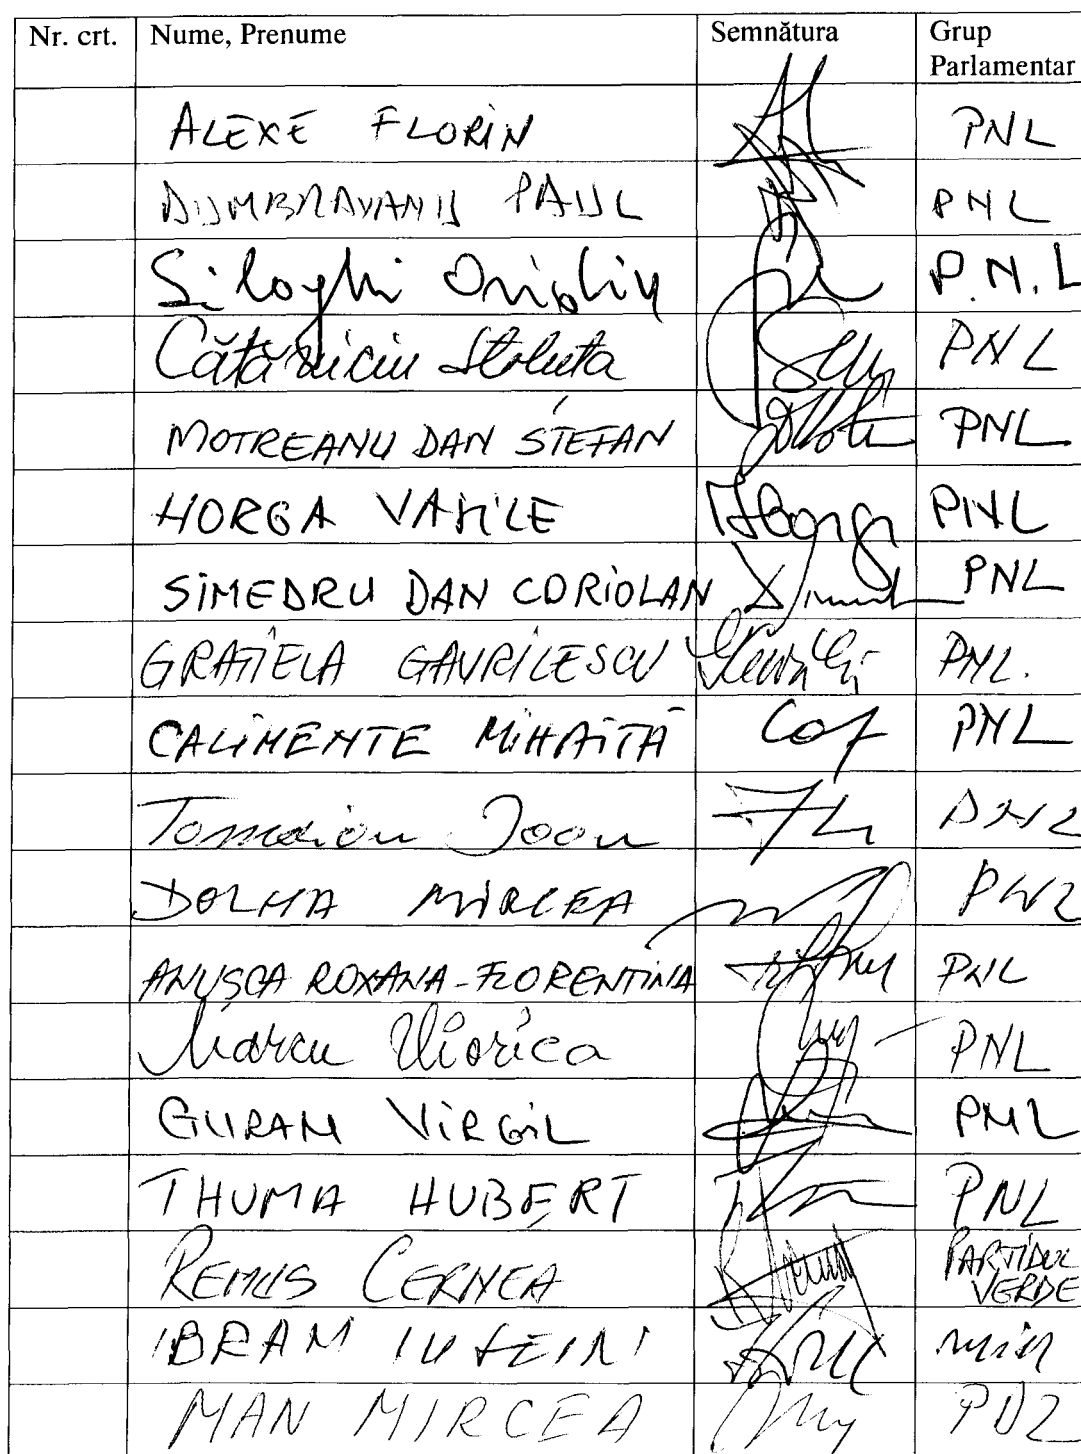 Nr. crt. Nume, Prenume Semnătura Grup
Parlamentar
ALEXE FLORIN PNL
DUMBRAVANU PAUL PNL
Siloghi Ovidiu P.N.L
Cătăniciu Steluta PNL
MOTREANU DAN ȘTEFAN PNL
HORGA VASILE PNL
SIMEDRU DAN CORIOLAN PNL
GRATIELA GAVRILESCU PNL.
CALIMENTE MIHĂIȚĂ PNL
Tomoiou Ioan PNL
DOLHA MIRCEA PNL
ANUȘCA ROXANA-FLORENTINA PNL
Marcu Viorica PNL
GURAN VIRGIL PNL
THUMA HUBERT PNL
REMUS CERNEA PARTIDUL
VERDE
IBRAM IUSEIN min
MAN MIRCEA PDL